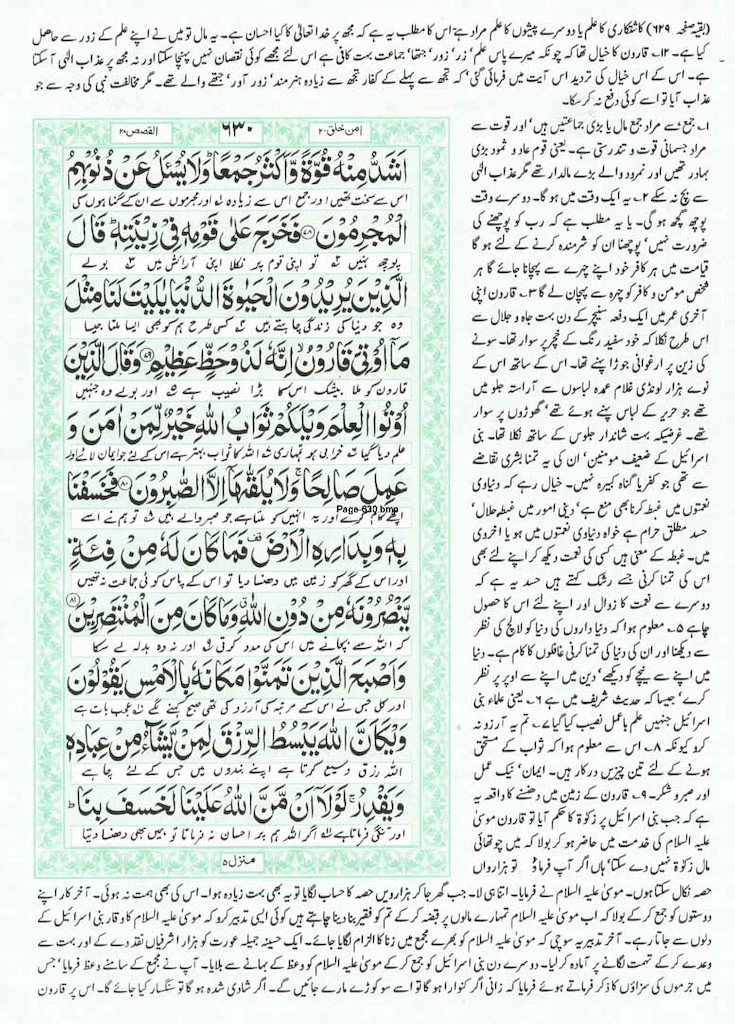 (بقیہ صفحہ ۶۲۹) کاشتکاری کا علم یا دوسرے پیشوں کا علم مراد ہے، اس کا مطلب یہ ہے کہ مجھ پر خدا تعالیٰ کا کیا احسان ہے۔ یہ مال تو میں نے اپنے علم کے زور سے حاصل
کیا ہے۔ ۱۲۔ قارون کا خیال تھا کہ چونکہ میرے پاس علم، زر، زور، جتھا، جماعت بہت کافی ہے اس لئے مجھے کوئی نقصان نہیں پہنچا سکتا اور نہ مجھ پر عذاب الٰہی آ سکتا
ہے۔ اس کے اس خیال کی تردید اس آیت میں فرمائی گئی، کہ تجھ سے پہلے کے کفار تجھ سے زیادہ ہنرمند، زور آور، جتھے والے تھے۔ مگر مخالفت نبی کی وجہ سے جو
عذاب آیا تو اسے کوئی دفع نہ کر سکا۔
القصص۲۸
۶۳۰
امن خلق۲۰
اَشَدُّ مِنْهُ قُوَّةً وَّاَكْثَرُ جَمْعًا ؕ وَلَا يُسْـَٔلُ عَنْ ذُنُوْبِهِمُ
اس سے سخت تھیں اور جمع اس سے زیادہ اور مجرموں سے ان کے گناہوں کی
الْمُجْرِمُوْنَ ۷۸ فَخَرَجَ عَلٰى قَوْمِهٖ فِيْ زِيْنَتِهٖ ؕ قَالَ
پوچھ نہیں تو اپنی قوم پر نکلا اپنی آرائش میں بولے
الَّذِيْنَ يُرِيْدُوْنَ الْحَيٰوةَ الدُّنْيَا يٰلَيْتَ لَنَا مِثْلَ
وہ جو دنیا کی زندگی چاہتے ہیں کسی طرح ہم کو بھی ایسا ملتا جیسا
مَاۤ اُوْتِيَ قَارُوْنُ ۙ اِنَّهٗ لَذُوْ حَظٍّ عَظِيْمٍ ۷۹ وَقَالَ الَّذِيْنَ
قارون کو ملا بیشک اس کا بڑا نصیب ہے اور بولے وہ جنہیں
اُوْتُوا الْعِلْمَ وَيْلَكُمْ ثَوَابُ اللّٰهِ خَيْرٌ لِّمَنْ اٰمَنَ وَ
علم دیا گیا خرابی ہو تمہاری اللہ کا ثواب بہتر ہے اس کے لئے جو ایمان لائے اور
عَمِلَ صَالِحًا ۚ وَلَا يُلَقّٰىهَاۤ اِلَّا الصّٰبِرُوْنَ ۸۰ فَخَسَفْنَا
اچھے کام کرے اور یہ انہیں کو ملتا ہے جو صبر والے ہیں تو ہم نے اسے
Page-630.bmp
بِهٖ وَبِدَارِهِ الْاَرْضَ ۫ فَمَا كَانَ لَهٗ مِنْ فِئَةٍ
اور اس کے گھر کو زمین میں دھنسا دیا تو اس کے پاس کوئی جماعت نہ تھی
يَّنْصُرُوْنَهٗ مِنْ دُوْنِ اللّٰهِ ۫ وَمَا كَانَ مِنَ الْمُنْتَصِرِيْنَ ۸۱
کہ اللہ سے بچانے میں اس کی مدد کرتی اور نہ وہ بدلہ لے سکا
وَاَصْبَحَ الَّذِيْنَ تَمَنَّوْا مَكَانَهٗ بِالْاَمْسِ يَقُوْلُوْنَ
اور کل جس نے اس کے مرتبہ کی آرزو کی تھی صبح کہنے لگے عجب بات ہے
وَيْكَاَنَّ اللّٰهَ يَبْسُطُ الرِّزْقَ لِمَنْ يَّشَآءُ مِنْ عِبَادِهٖ
اللہ رزق وسیع کرتا ہے اپنے بندوں میں جس کے لئے چاہے
وَيَقْدِرُ ۚ لَوْلَاۤ اَنْ مَّنَّ اللّٰهُ عَلَيْنَا لَخَسَفَ بِنَا ؕ
اور تنگی فرماتا ہے اگر اللہ ہم پر احسان نہ فرماتا تو ہمیں بھی دھنسا دیتا
منزل۵
۱۔ جمع سے مراد جمع مال یا بڑی جماعتیں ہیں، اور قوت سے
مراد جسمانی قوت و تندرستی ہے۔ یعنی قوم عاد و ثمود بڑی
بہادر تھیں اور نمرود والے بڑے مالدار تھے مگر عذاب الٰہی
سے بچ نہ سکے ۲۔ یہ ایک وقت میں ہو گا۔ دوسرے وقت
پوچھ گچھ ہو گی۔ یا یہ مطلب ہے کہ رب کو پوچھنے کی
ضرورت نہیں، پوچھنا ان کو شرمندہ کرنے کے لئے ہو گا
قیامت میں ہر کافر خود اپنے چہرے سے پہچانا جائے گا ہر
شخص مومن و کافر کو چہرہ سے پہچان لے گا ۳۔ قارون اپنی
آخری عمر میں ایک دفعہ سنیچر کے دن بہت جاہ و جلال سے
اس طرح نکلا کہ خود سفید رنگ کے خچر پر سوار تھا۔ سونے
کی زین پر ارغوانی جوڑا پہنے تھا۔ اس کے ساتھ اس کے
نوے ہزار لونڈی غلام عمدہ لباسوں سے آراستہ جلو میں
تھے جو حریر کے لباس پہنے ہوئے تھے، گھوڑوں پر سوار
تھے۔ غرضیکہ بہت شاندار جلوس کے ساتھ نکلا تھا۔ بنی
اسرائیل کے ضعیف مومنین، ان کی یہ تمنا بشری تقاضے
سے تھی جو کفر یا گناہ کبیرہ نہیں۔ خیال رہے کہ دنیاوی
نعمتوں میں غبطہ کرنا بھی منع ہے، دینی امور میں غبطہ حلال،
حسد مطلق حرام ہے خواہ دنیاوی نعمتوں میں ہو یا اخروی
میں۔ غبطہ کے معنی ہیں کسی کی نعمت دیکھ کر اپنے لئے بھی
اس کی تمنا کرنی جسے رشک کہتے ہیں حسد یہ ہے کہ
دوسرے سے نعمت کا زوال اور اپنے لئے اس کا حصول
چاہے ۵۔ معلوم ہوا کہ دنیا داروں کی دنیا کو لالچ کی نظر
سے دیکھنا اور ان کی دنیا کی تمنا کرنی غافلوں کا کام ہے۔ دنیا
میں اپنے سے نیچے کو دیکھے، دین میں اپنے سے اوپر پر نظر
کرے، جیسا کہ حدیث شریف میں ہے ۶۔ یعنی علماء بنی
اسرائیل جنہیں علم باعمل نصیب کیا گیا ۷۔ تم یہ آرزو نہ
کرو کیونکہ ۸۔ اس سے معلوم ہوا کہ ثواب کے مستحق
ہونے کے لئے تین چیزیں درکار ہیں۔ ایمان، نیک عمل
اور صبر و شکر۔ ۹۔ قارون کے زمین میں دھنسنے کا واقعہ یہ
ہے کہ جب بنی اسرائیل پر زکوٰۃ کا حکم آیا تو قارون موسیٰ
علیہ السلام کی خدمت میں حاضر ہو کر بولا کہ میں چوتھائی
مال زکوٰۃ نہیں دے سکتا، ہاں اگر آپ فرماؤ تو ہزارواں
حصہ نکال سکتا ہوں۔ موسیٰ علیہ السلام نے فرمایا۔ اتنا ہی لا۔ جب گھر جا کر ہزارویں حصہ کا حساب لگایا تو یہ بھی بہت زیادہ ہوا۔ اس کی بھی ہمت نہ ہوئی۔ آخر کار اپنے
دوستوں کو جمع کر کے بولا کہ اب موسیٰ علیہ السلام تمہارے مالوں پر قبضہ کر کے تم کو فقیر بنا دینا چاہتے ہیں کوئی ایسی تدبیر کرو کہ موسیٰ علیہ السلام کا وقار بنی اسرائیل کے
دلوں سے جاتا رہے۔ آخر تدبیر یہ سوچی کہ موسیٰ علیہ السلام کو بھرے مجمع میں زنا کا الزام لگایا جائے۔ ایک حسینہ جمیلہ عورت کو ہزار اشرفیاں نقد دے کے اور بہت سے
وعدے کر کے تہمت لگانے پر آمادہ کر لیا۔ دوسرے دن بنی اسرائیل کو جمع کر کے موسیٰ علیہ السلام کو وعظ کے بہانے سے بلایا۔ آپ نے مجمع کے سامنے وعظ فرمایا، جس
میں جرموں کی سزاؤں کا ذکر فرماتے ہوئے فرمایا کہ زانی اگر کنوارا ہو گا تو اسے سو کوڑے مارے جائیں گے۔ اگر شادی شدہ ہو گا تو سنگسار کیا جائے گا۔ اس پر قارون